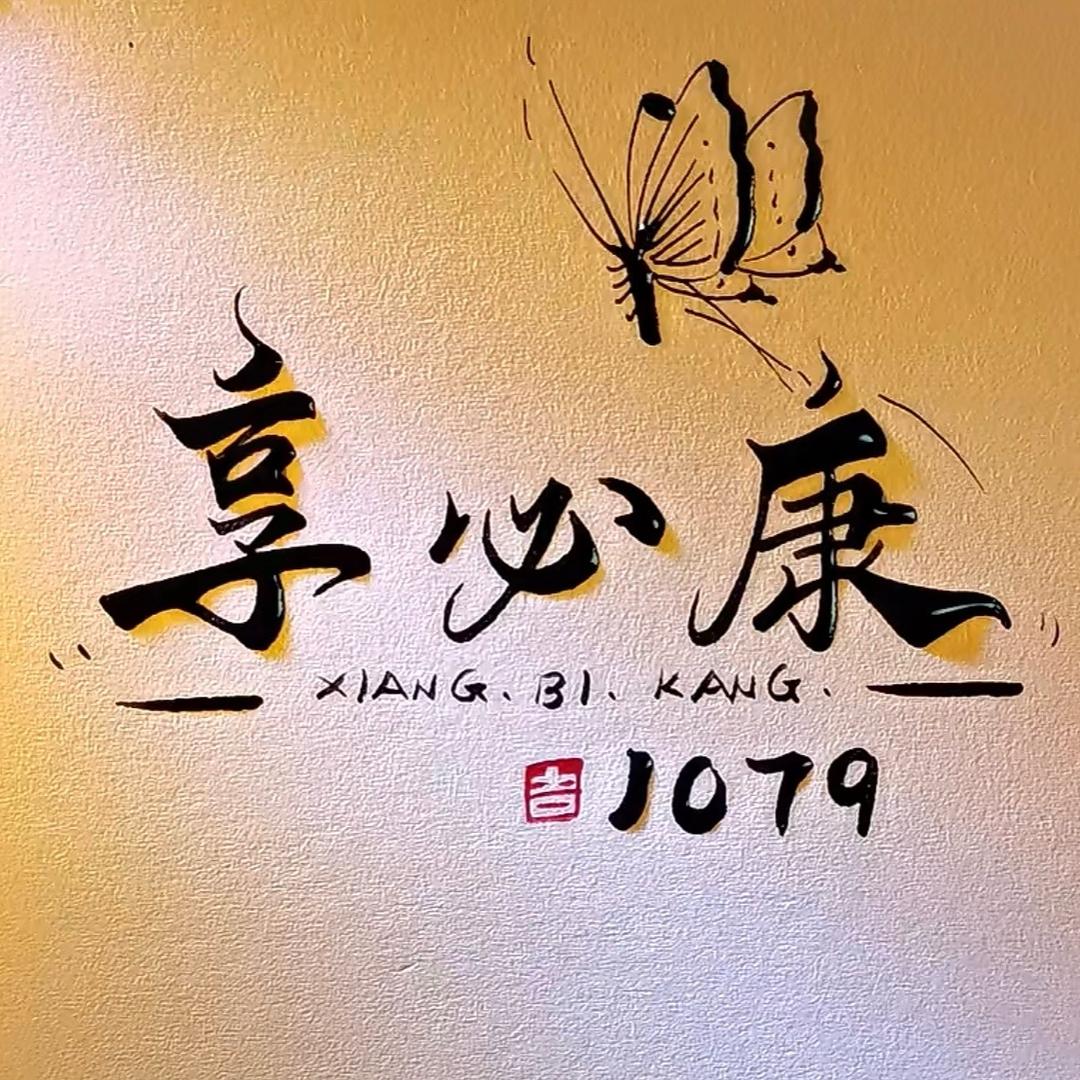 享必康
XIANG. BI. KANG.
吉 1079